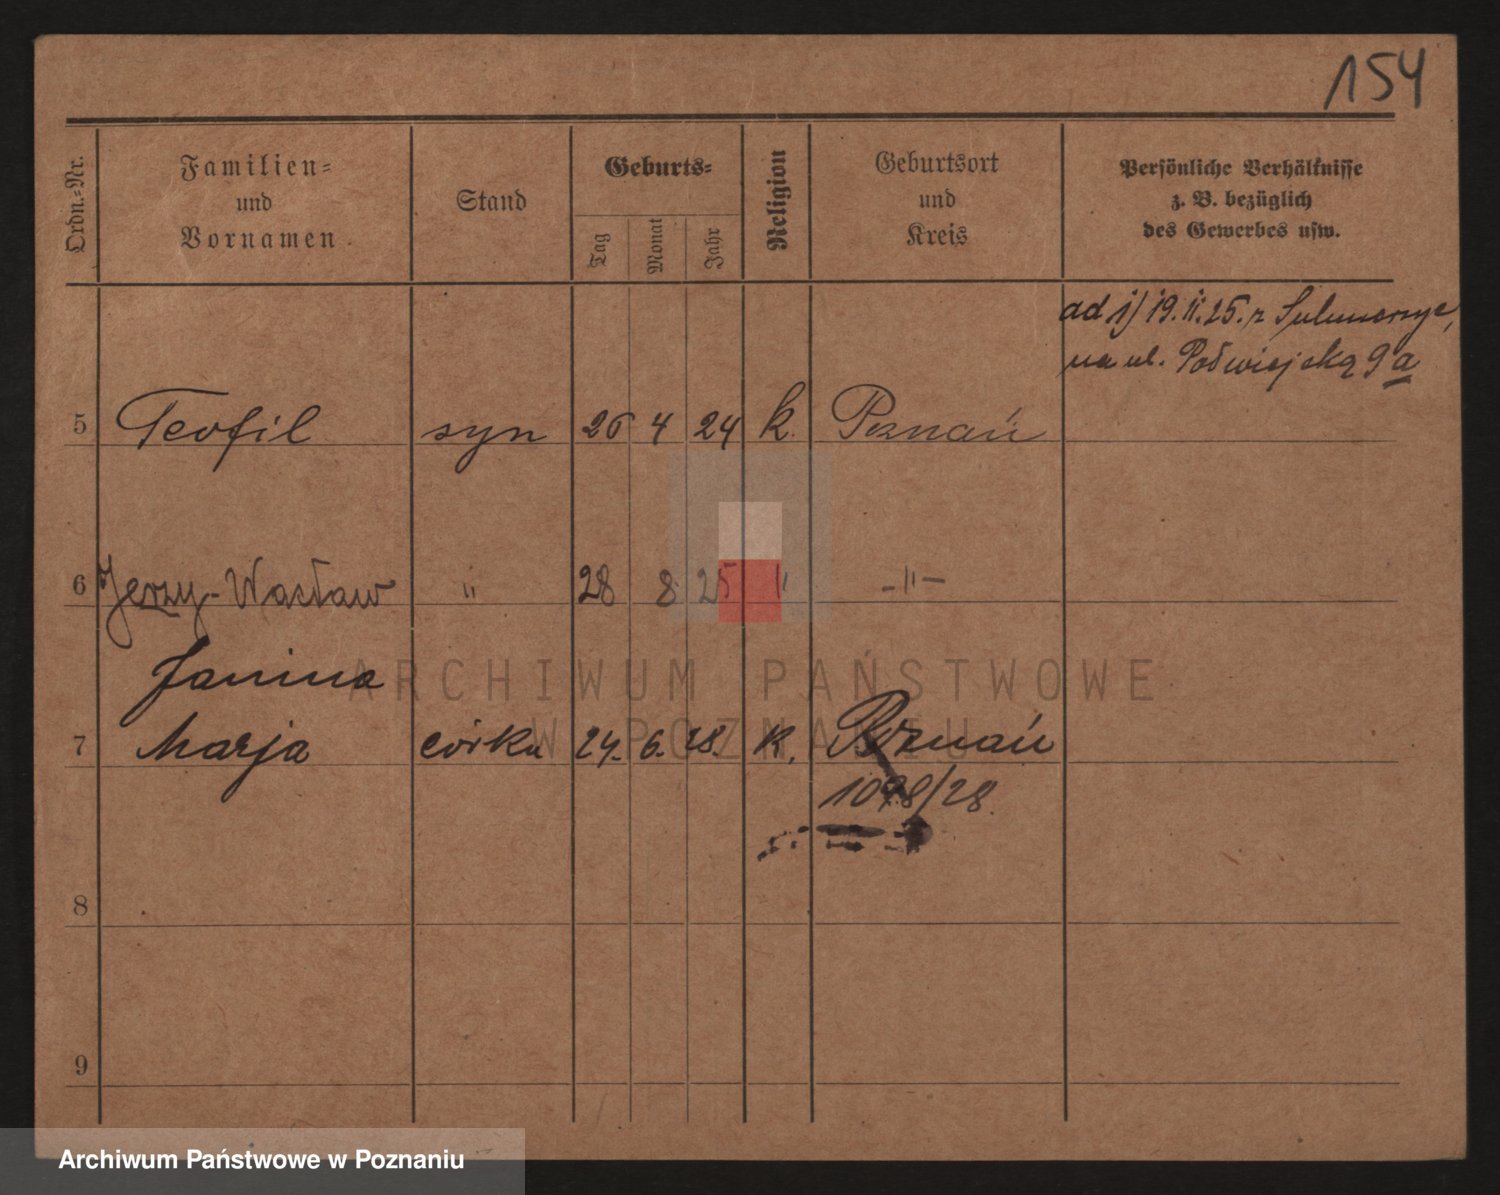 154
Ordn.=Nr.
Familien=
und
Vornamen
Stand
Geburts=
Tag
Monat
Jahr
Religion
Geburtsort
und
Kreis
Persönliche Verhältnisse
z. B. bezüglich
des Gewerbes usw.
ad 1) 19.11.25. z Sulmierzyc,
na ul. Półwiejską 9a
5 Teofil syn 26 4 24 k. Poznań
6 Jerzy-Wacław " 28 8 25 " -"-
Janina
7 Marja córka 24. 6. 28. K. Poznań
1098/28
8
9
ARCHIWUM PAŃSTWOWE
W POZNANIU
Archiwum Państwowe w Poznaniu